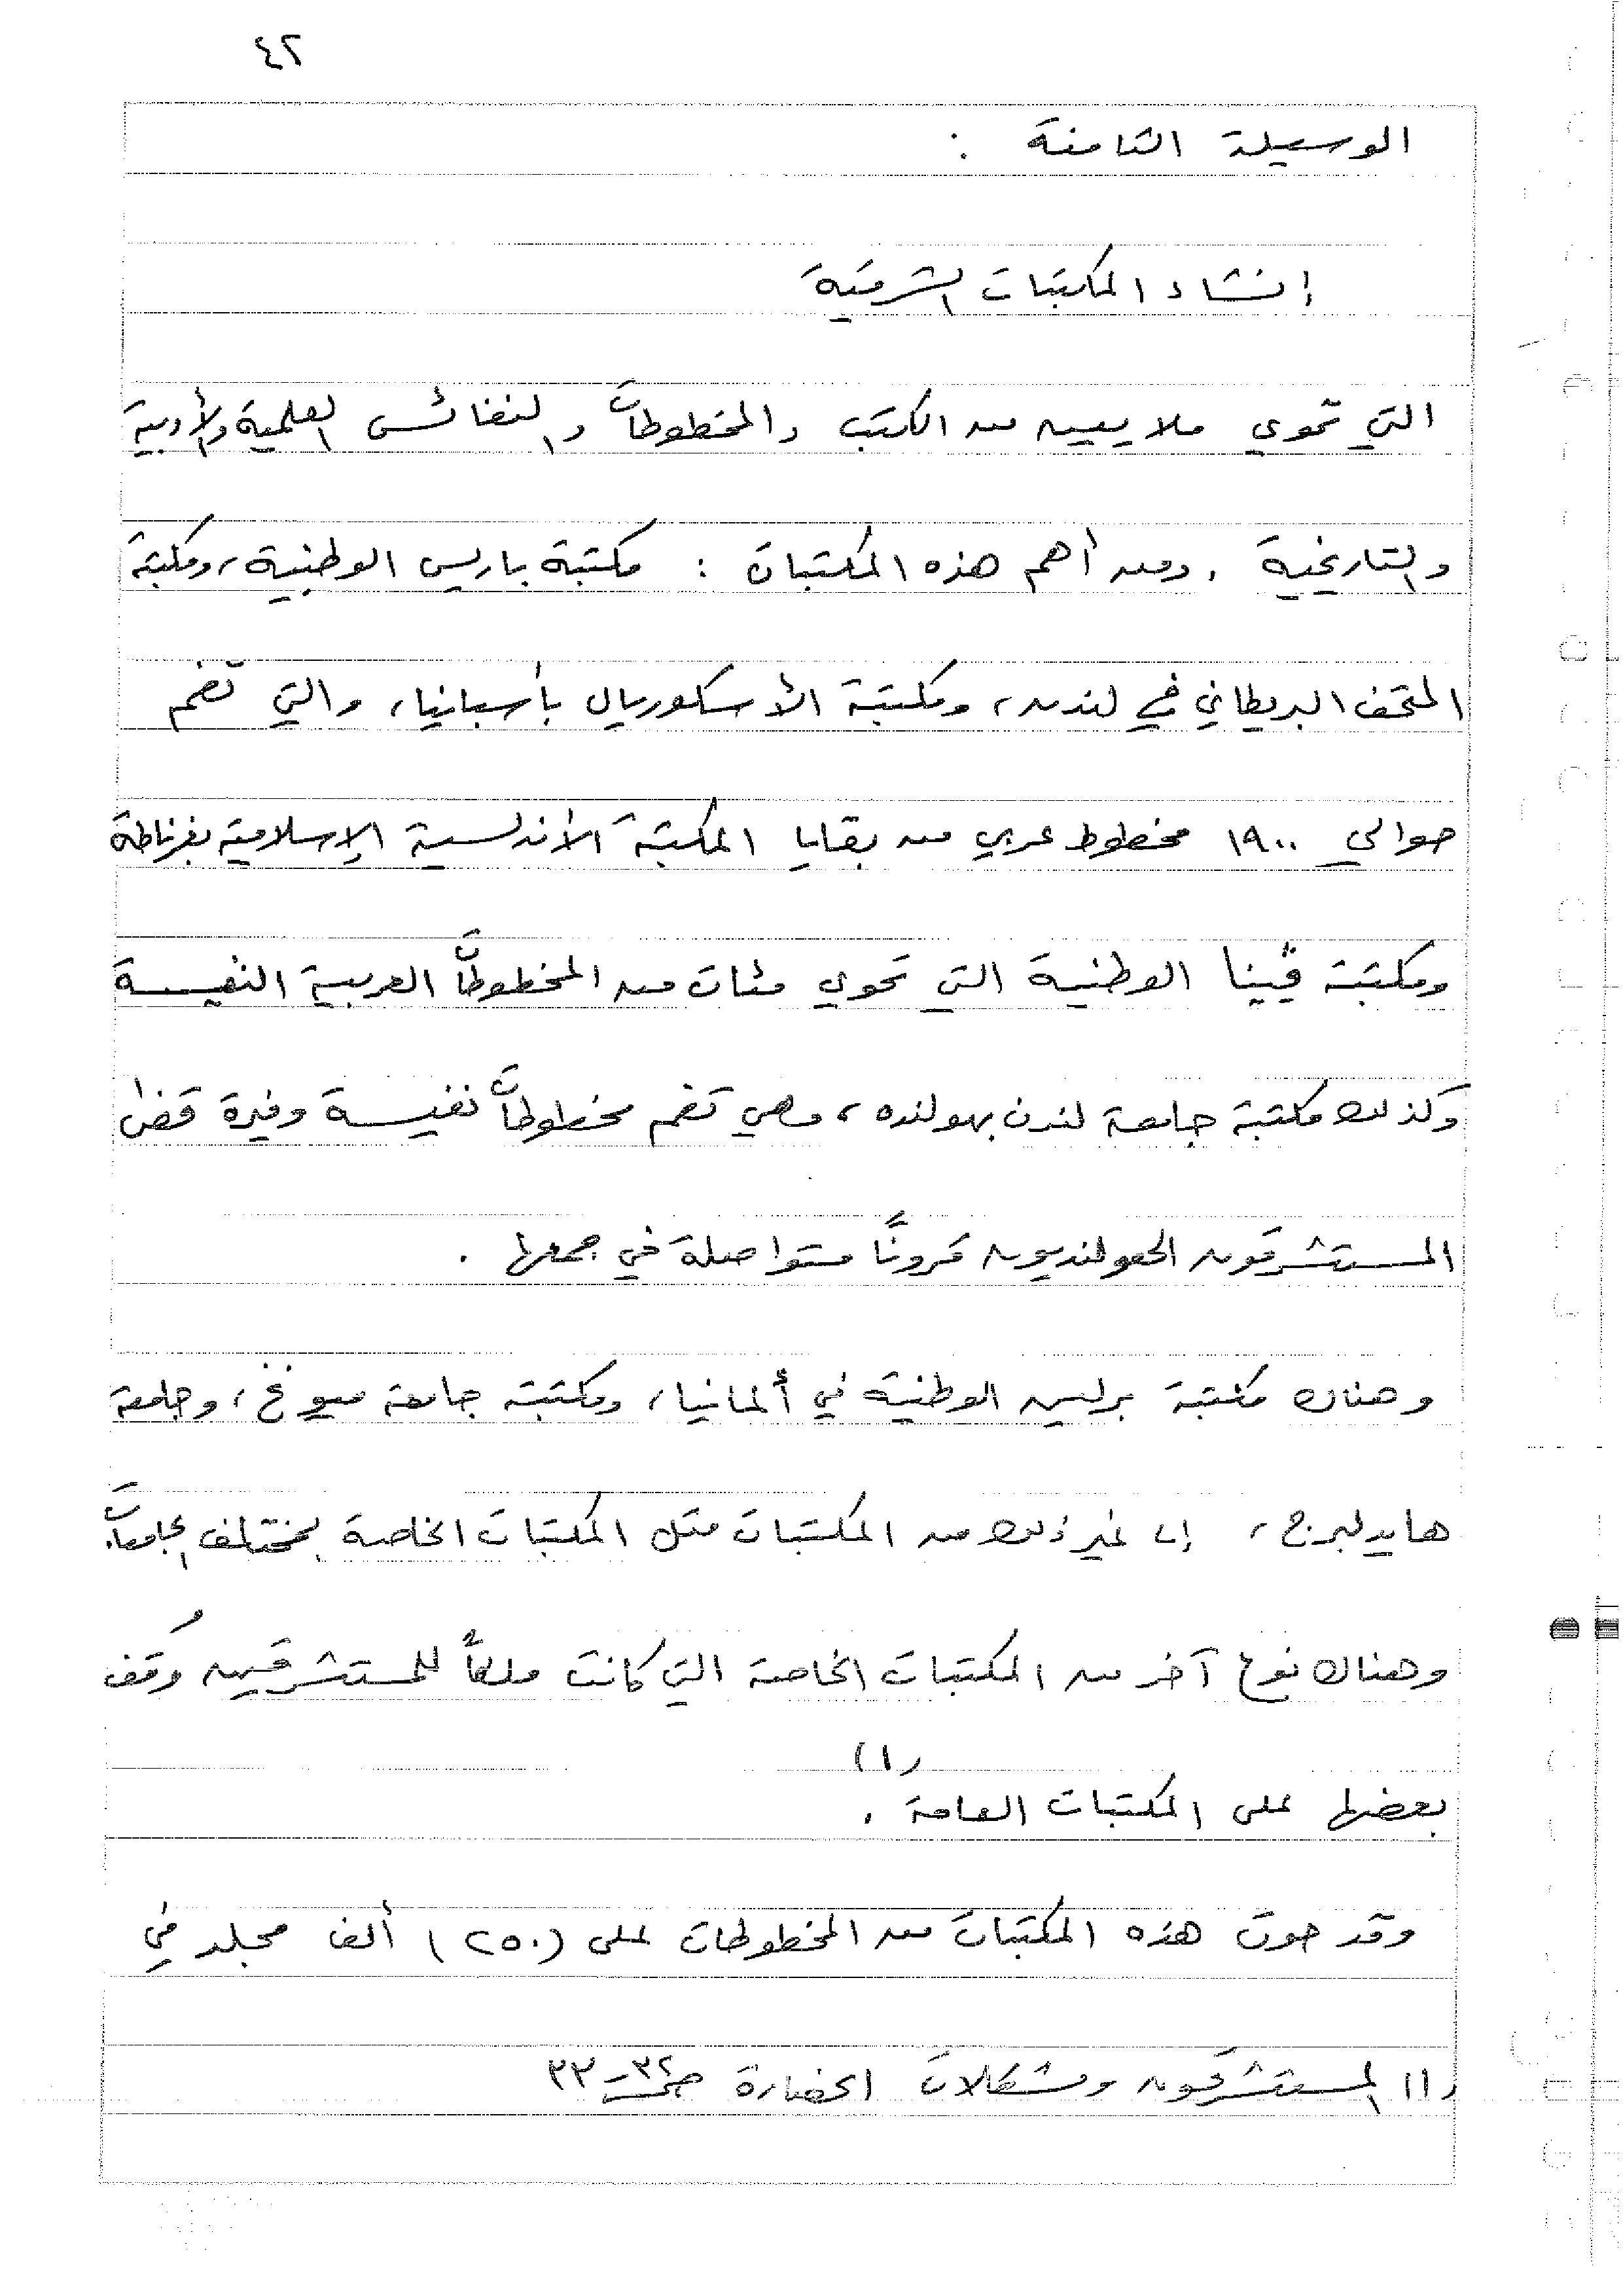 ٤٢
الوسيلة الثامنة :
إنشاء المكتبات الشرقية
التي تحوي ملايين من الكتب والمخطوطات والنفائس العلمية والأدبية
والتاريخية . ومن أهم هذه المكتبات : مكتبة باريس الوطنية، ومكتبة
المتحف البريطاني في لندن، ومكتبة الأسكوريال بأسبانيا، والتي تضم
حوالي ١٩٠٠ مخطوط عربي من بقايا المكتبة الأندلسية الإسلامية بغرناطة
ومكتبة ڤيينا الوطنية التي تحوي مئات من المخطوطات العربية النفيسة
وكذلك مكتبة جامعة لندن بهولنده، وهي تضم مخطوطات نفيسة وفيرة قضى
المستشرقون الهولنديون قرونًا متواصلة في جمعها .
وهناك مكتبة برلين الوطنية في ألمانيا، ومكتبة جامعة ميونخ، وجامعة
هايدلبرج، إلى غير ذلك من المكتبات مثل المكتبات الخاصة بمختلف الجامعات.
وهناك نوع آخر من المكتبات الخاصة التي كانت ملكًا للمستشرقين وُقف
بعضها على المكتبات العامة . (١)
وقد حوت هذه المكتبات من المخطوطات على (٢٥٠) ألف مجلد في
(١) المستشرقون ومشكلات الحضارة ص ٣٢-٣٣